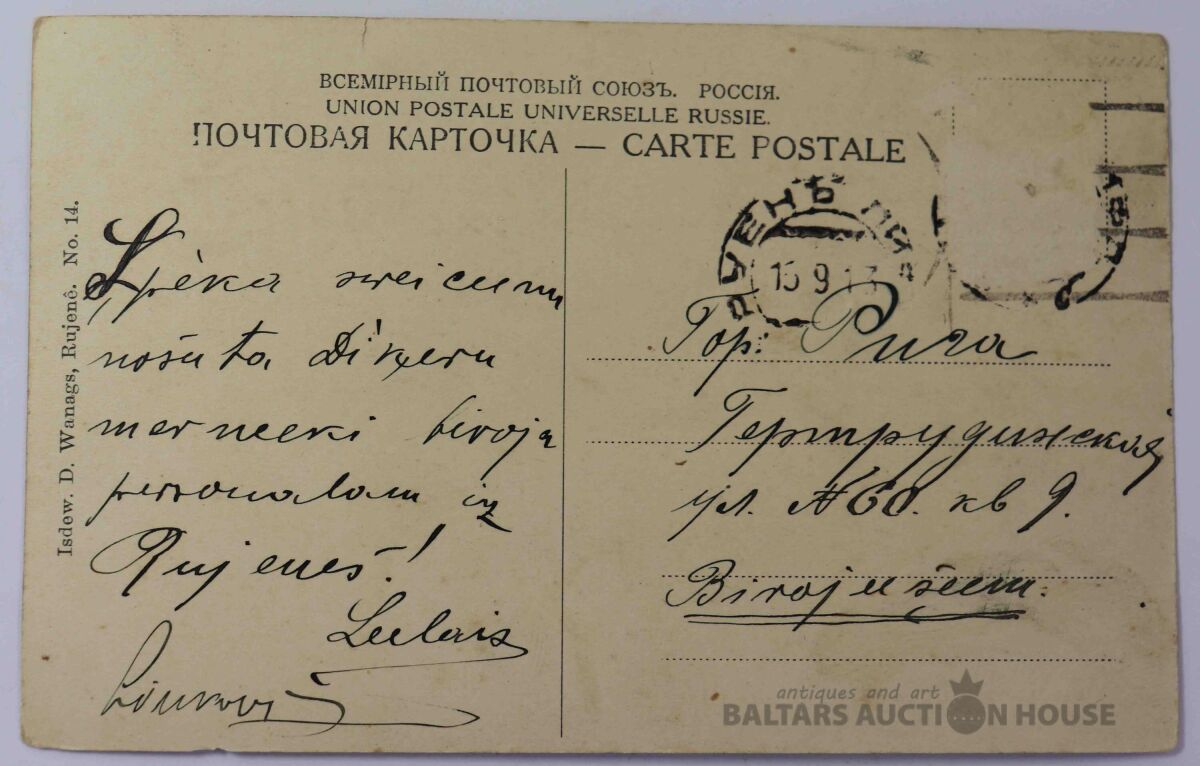 ВСЕМІРНЫЙ ПОЧТОВЫЙ СОЮЗЪ. РОССІЯ.
UNION POSTALE UNIVERSELLE RUSSIE.
ПОЧТОВАЯ КАРТОЧКА — CARTE POSTALE
Isdew. D. Wanags, Rujenê. No. 14.
Spēka sweicumu
nosūta Diķeru
mērneeki biroja
personalam iz
Rujenes!
Leelais
РУЕНЪ ЛИФ
15 9 1
Гор. Рига
Гертрудинская
ул. № 60. кв 9.
Birojuseem.
antiques and art
BALTARS AUCTION HOUSE